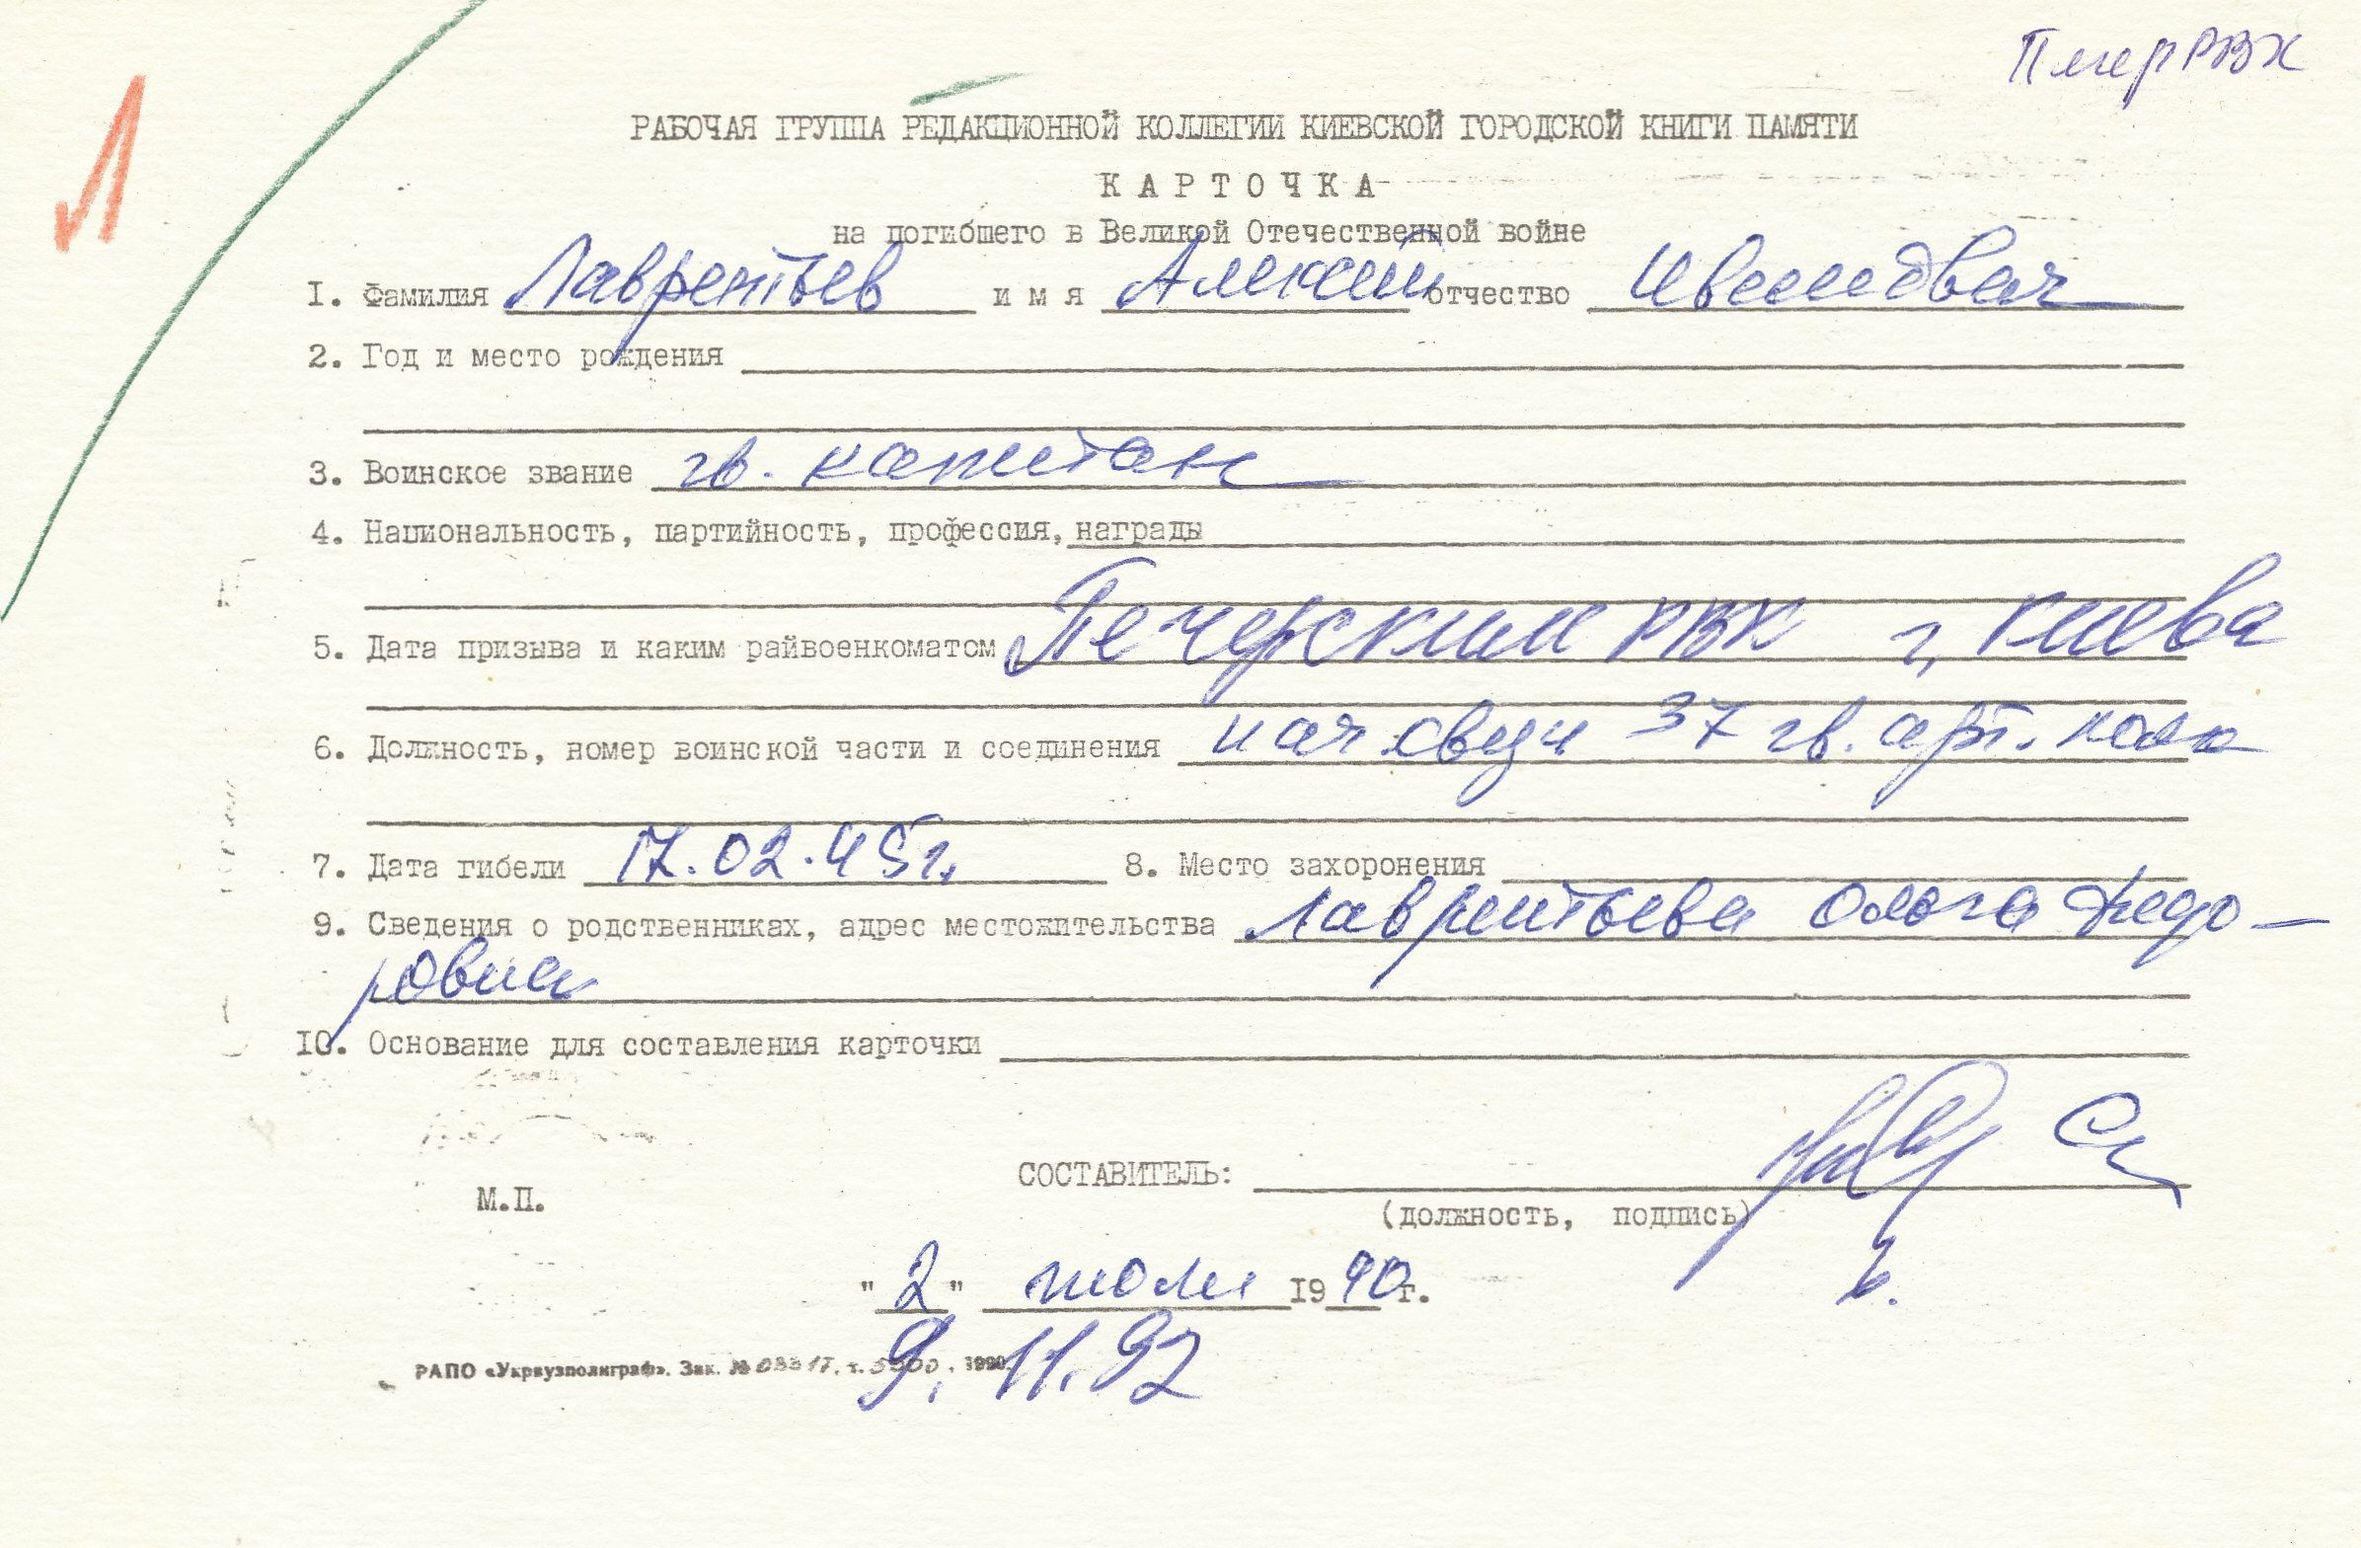 Л
Печер РВК
РАБОЧАЯ ГРУППА РЕДАКЦИОННОЙ КОЛЛЕГИИ КИЕВСКОЙ ГОРОДСКОЙ КНИГИ ПАМЯТИ
К А Р Т О Ч К А
на погибшего в Великой Отечественной войне
I. Фамилия Лаврентьев и м я Алексей отчество
2. Год и место рождения
3. Воинское звание гв. капитан
4. Национальность, партийность, профессия, награды
5. Дата призыва и каким райвоенкоматом Печерским РВК г. Киева
6. Должность, номер воинской части и соединения нач связи 37 гв. арт. полка
7. Дата гибели 17.02.45г. 8. Место захоронения
9. Сведения о родственниках, адрес местожительства Лаврентьева Ольга Федо-
ровна
10. Основание для составления карточки
СОСТАВИТЕЛЬ:
М.П.
(должность, подпись)
"2" июля 1990г.
9.11.92
РАПО «Укрвузполиграф». Зак. № 1990